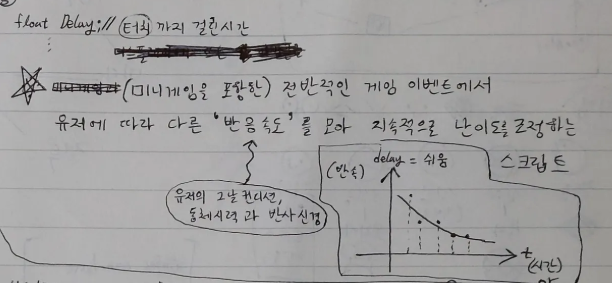 float Delay; // 터치 까지 걸린시간
(미니게임을 포함한) 전반적인 게임 이벤트에서
유저에 따라 다른 '반응속도'를 모아 지속적으로 난이도를 조정하는
스크립트
유저의 그날 컨디션,
동체시력과 반사신경
(반속) delay = 쉬움
t
(시간)